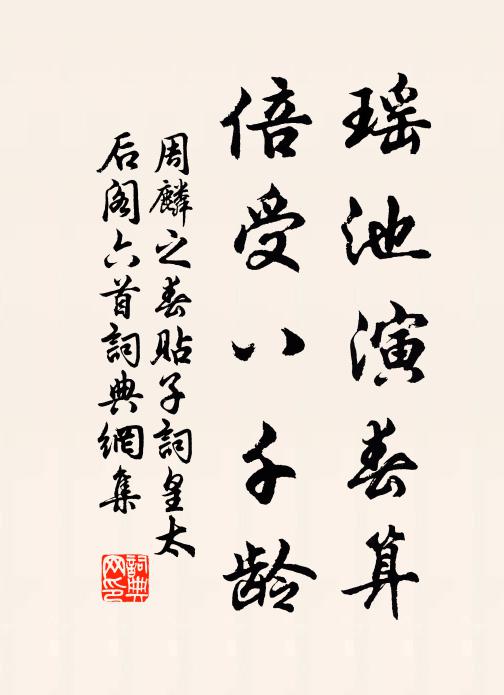 瑶池演春算
倍受八千龄
周麟之春貼子詞皇太
后阁六首詞典網集
詞典网印